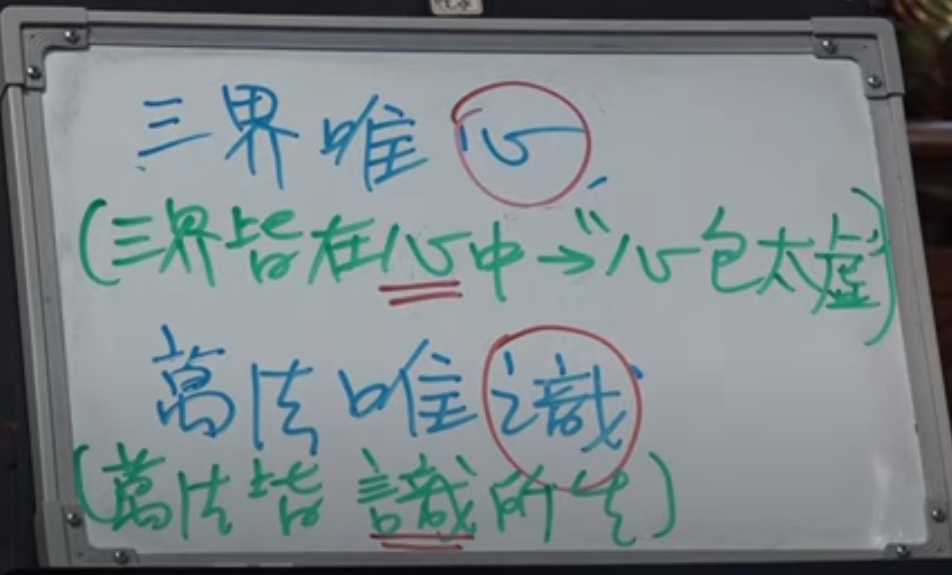 三界唯心
(三界皆在心中→"心包太虛")
萬法唯識
(萬法皆識所生)